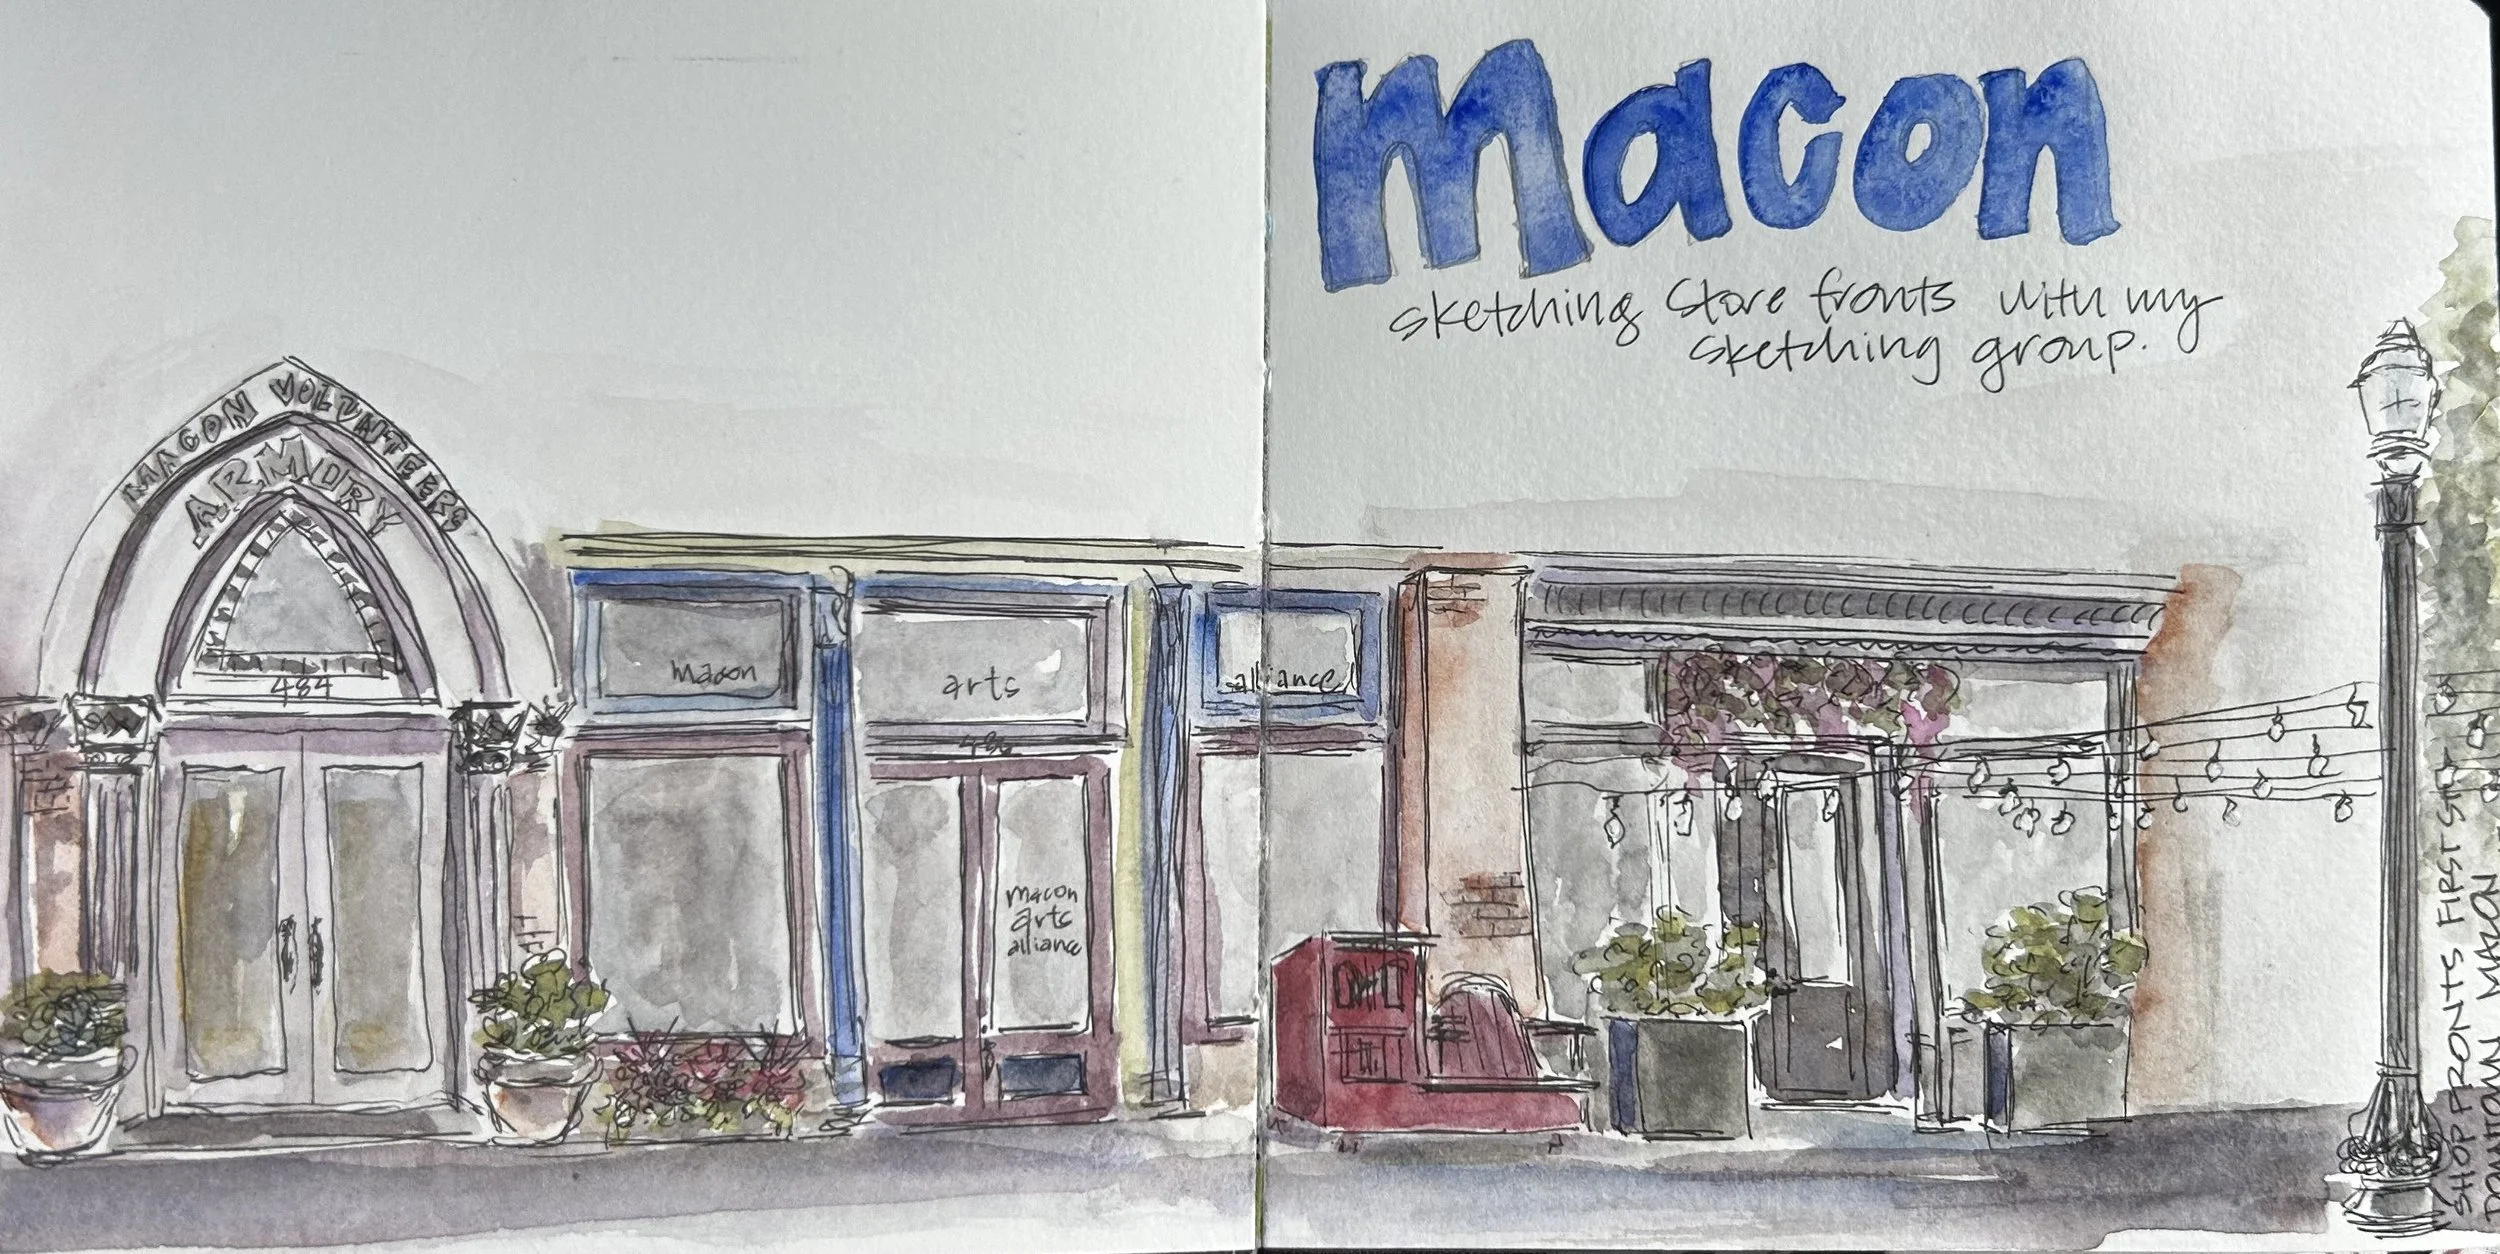 macon
sketching store fronts with my
sketching group.
MACON VOLUNTEERS
ARMORY
484
macon
arts
alliance
486
macon
arts
alliance
SHOP FRONTS FIRST ST
DOWNTOWN MACON